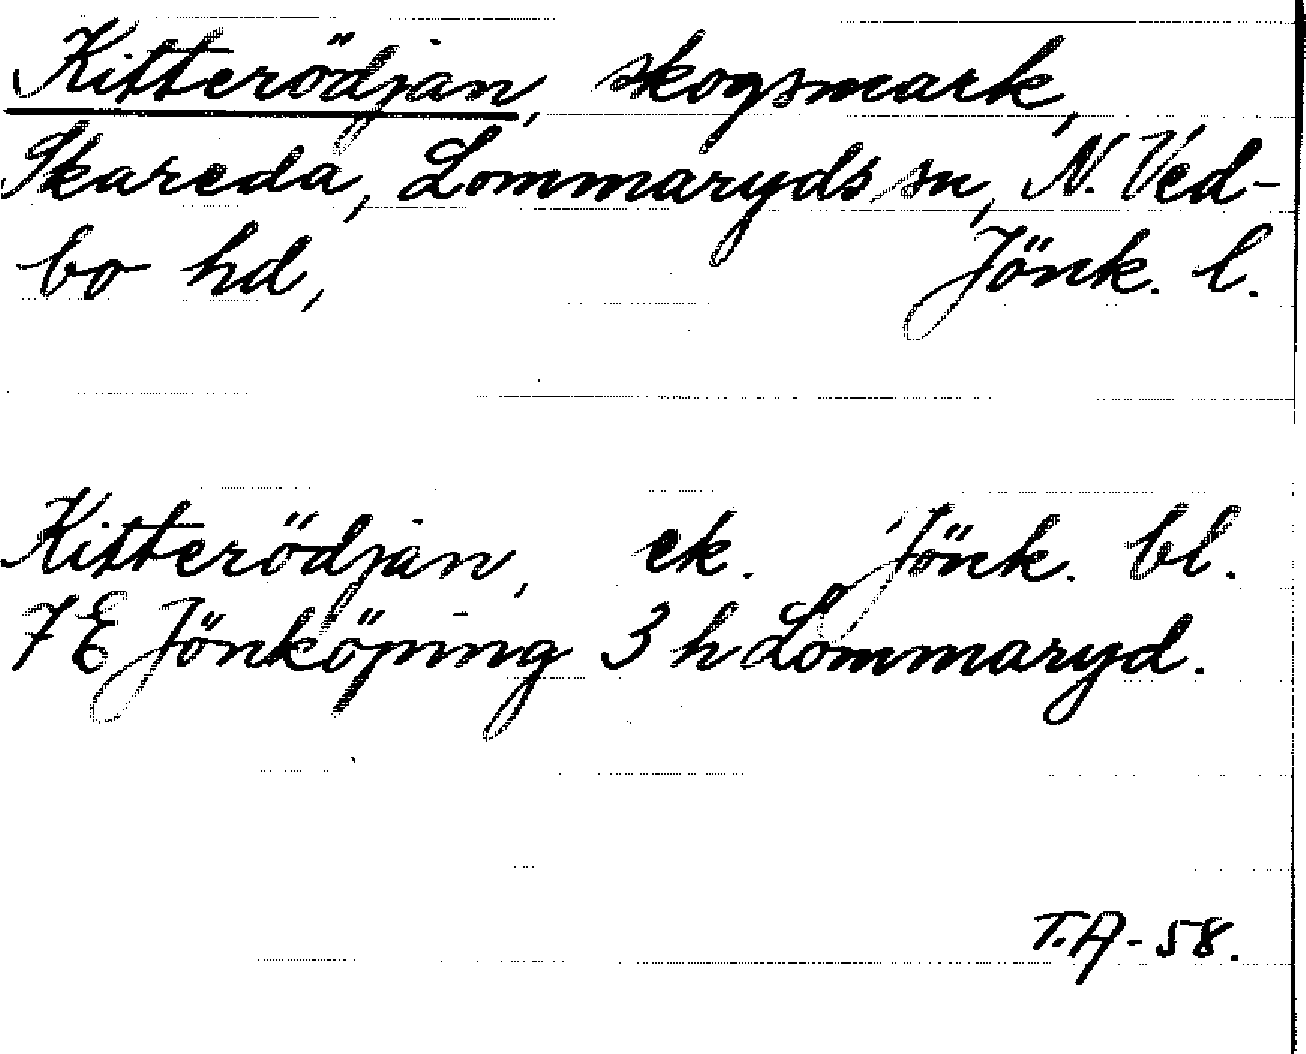 Kitterödjan, skogsmark,
Skareda, Lommaryds sn, N. Ved-
bo hd, Jönk. l.
Kitterödjan, ek. Jönk. bl.
7E Jönköping 3 h Lommaryd.
T.A-58.